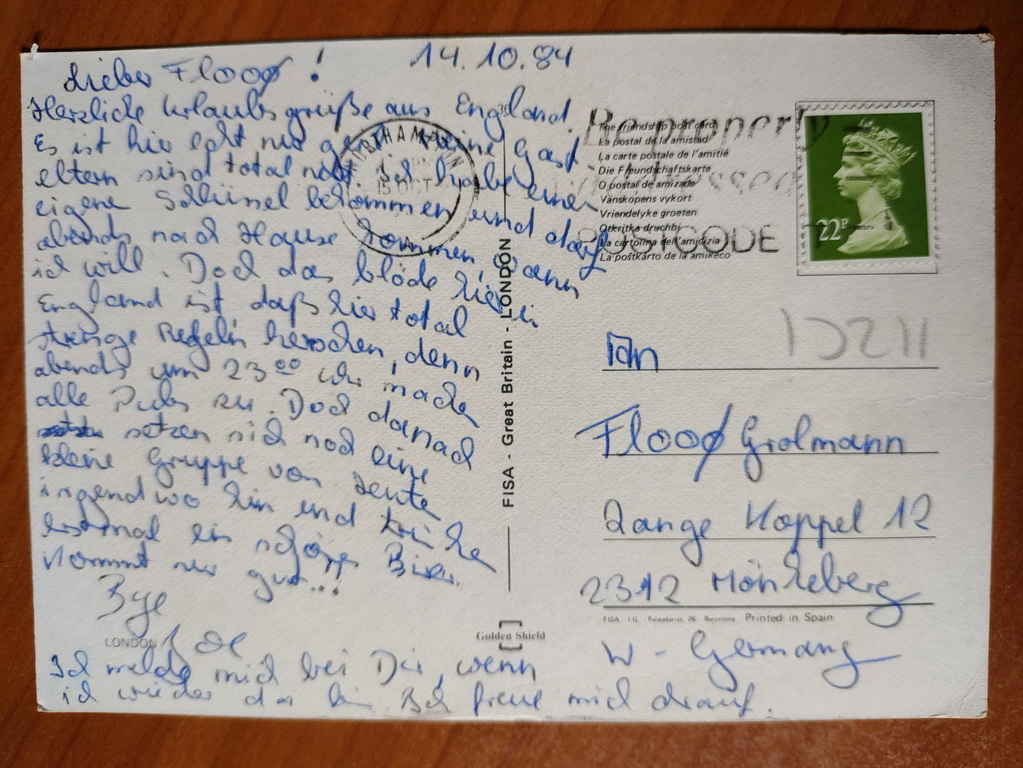 14.10.84
Lieber Flooø !
Herzliche Urlaubsgrüße aus England.
Es ist hier echt gut meine Gast
eltern sind total nett. Ich habe einen
eigene Schlüssel bekommen und darf
abends nach Hause kommen, wann
ich will. Doch das blöde hier in
England ist daß hier total
strenge Regeln herschen, denn
abends um 23 00 Uhr machen
alle Pubs zu. Doch danach
setzen sich noch eine
kleine Gruppe von Leute
irgendwo hin und trinken
erstmal ein schönes Bier.
Kommt nur gut...
Bye
LONDON
Ich melde mich bei Dir, wenn
ich wieder da bin. Ich freue mich drauf.
FISA - Great Britain - LONDON
Golden Shield
15 OCT
Be properly
addressed
POSTCODE
The friendship post card
La postal de la amistad
La carte postale de l'amitié
Die Freundschaftskarte
O postal de amizade
Vänskapens vykort
Vriendelyke groeten
Otkritka druchbj
La cartolina dell'amicizia
La postkarto de la amikeco
22P
An
Flooø Grolmann
Lange Koppel 12
2312 Mönkeberg
FISA I.G. Palaudarias, 26 Barcelona Printed in Spain
W - Germany